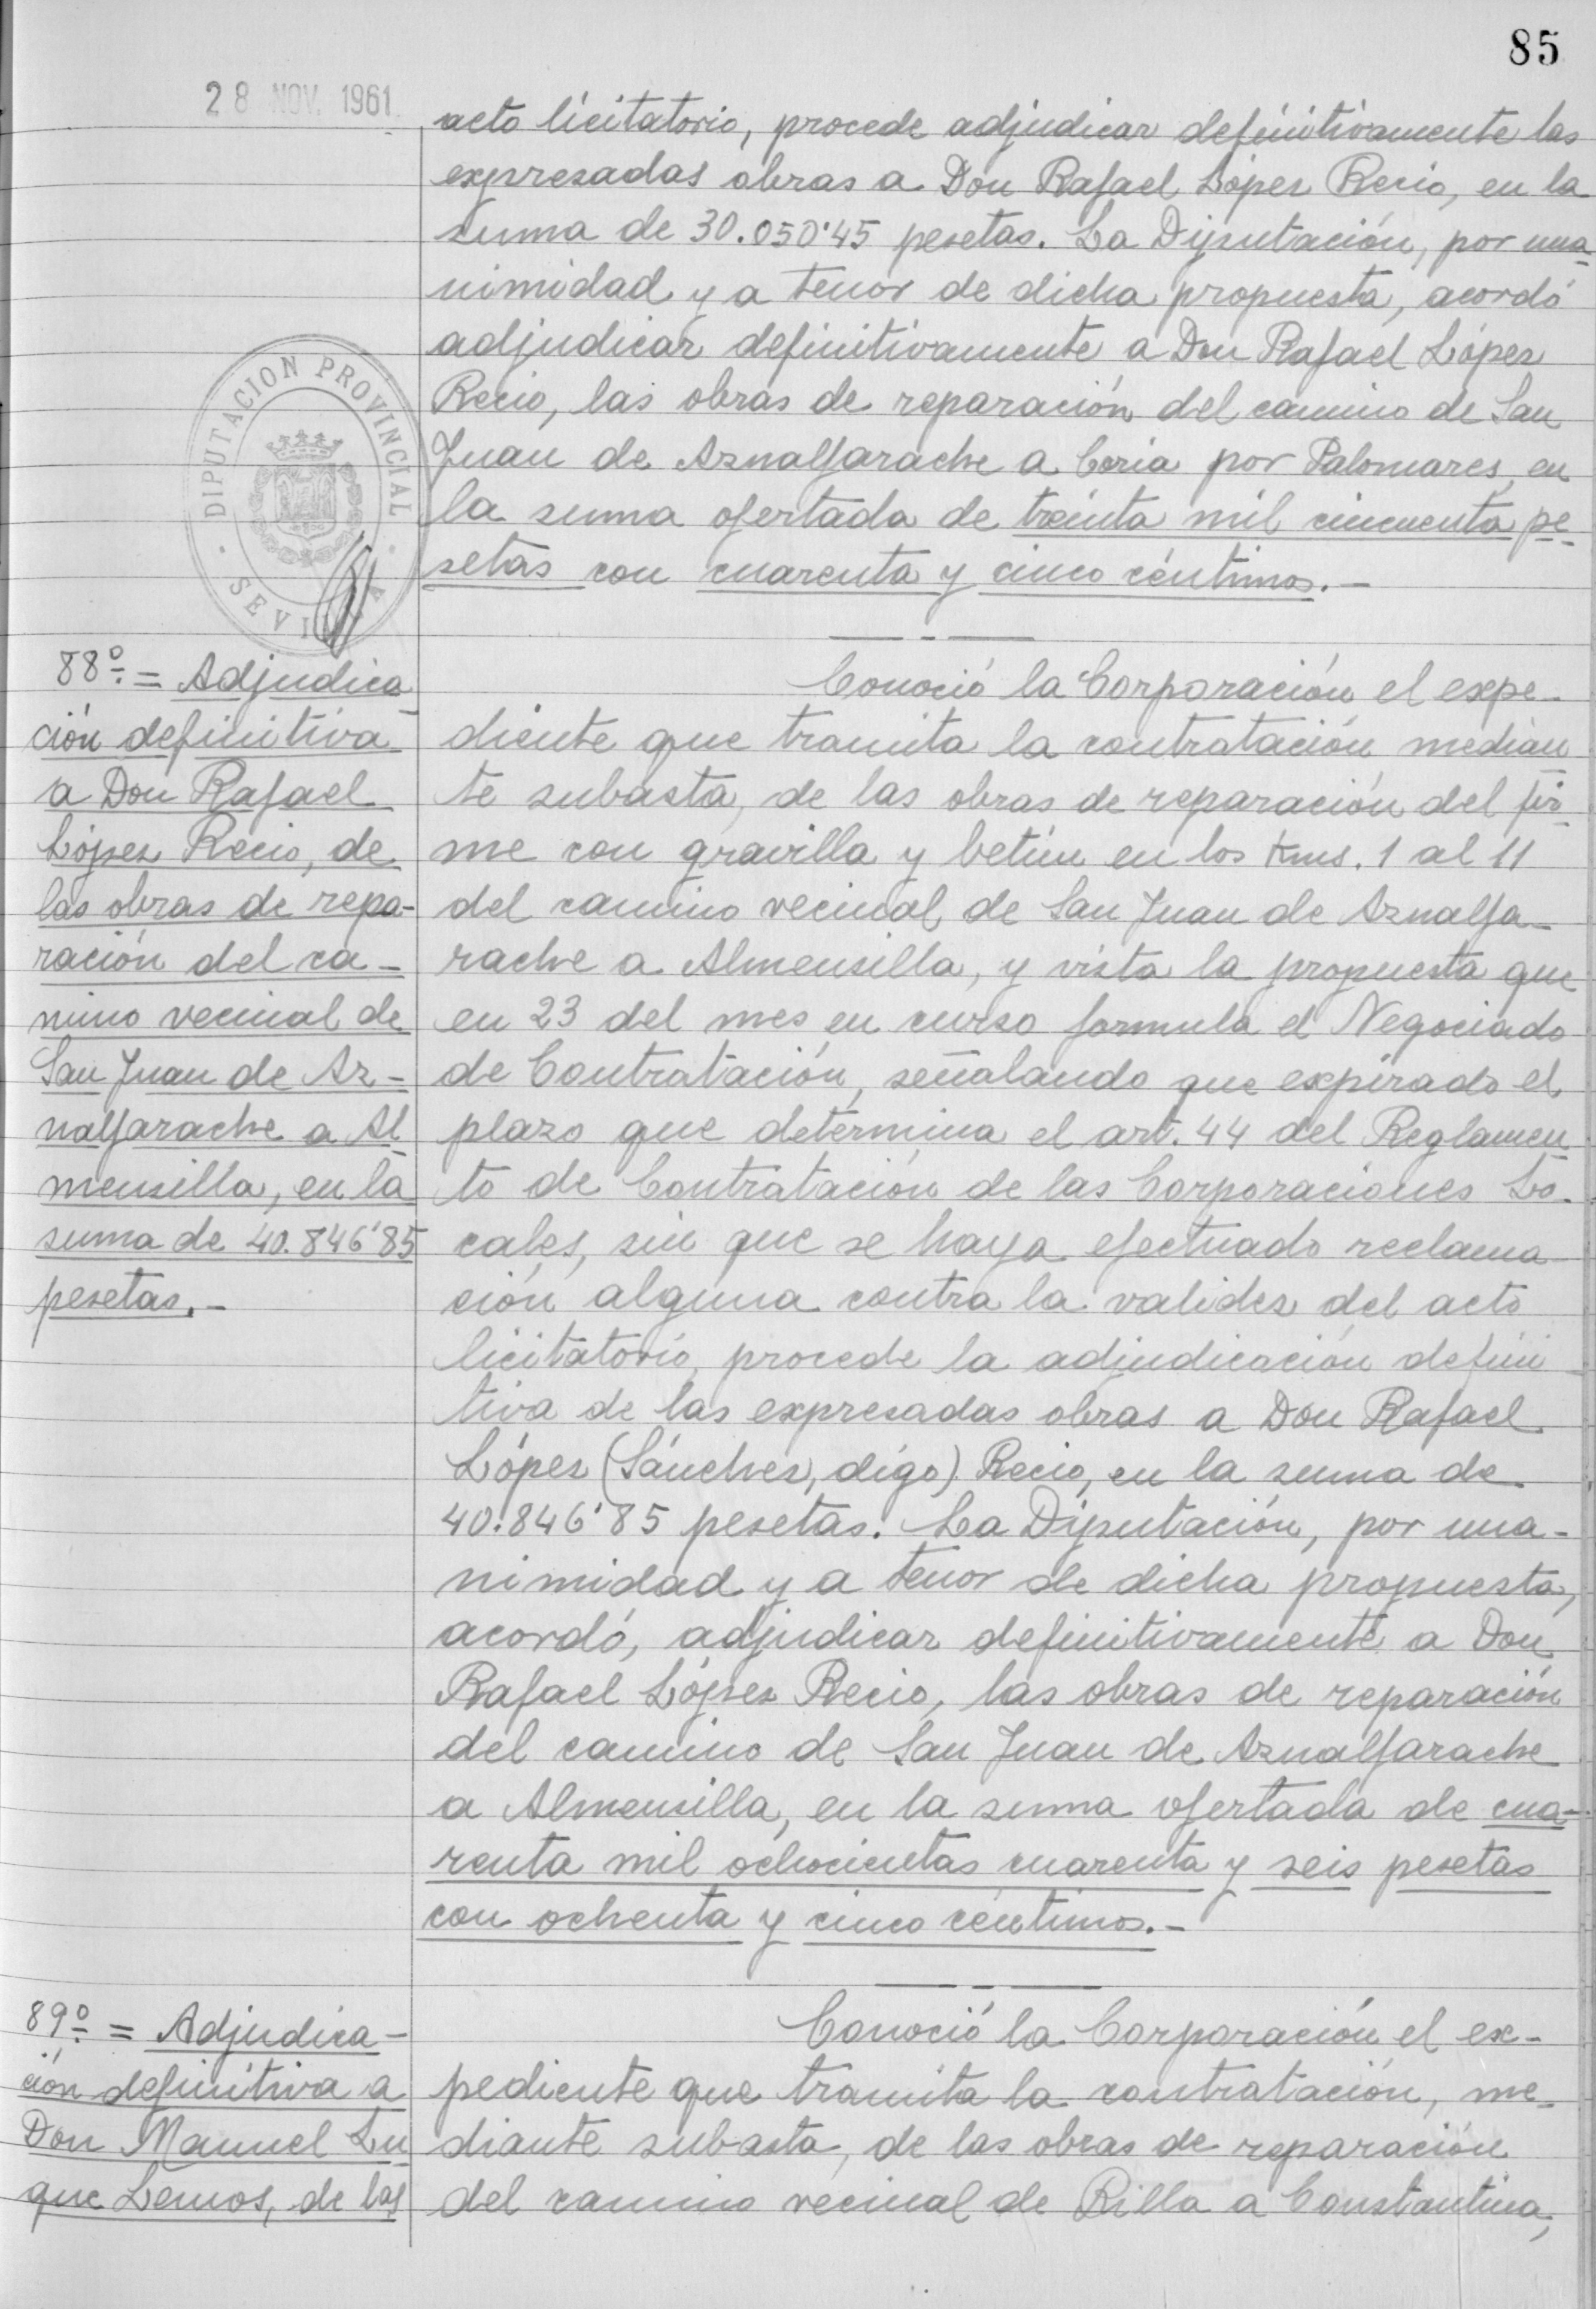 85
28 NOV. 1961
acto licitatorio, procede adjudicar definitivamente las
expresadas obras a Don Rafael López Recio, en la
suma de 30.050'45 pesetas. La Diputación, por una-
nimidad y a tenor de dicha propuesta, acordó
adjudicar definitivamente a Don Rafael López
Recio, las obras de reparación del camino de San
Juan de Aznalfarache a Coria por Palomares, en
la suma ofertada de treinta mil cincuenta pe-
setas con cuarenta y cinco céntimos.-
DIPUTACION PROVINCIAL
SEVILLA
88º.= Adjudica-
ción definitiva
a Don Rafael
López Recio, de
las obras de repa-
ración del ca-
mino vecinal de
San Juan de Az-
nalfarache a Al-
mensilla, en la
suma de 40.846'85
pesetas.-
Conoció la Corporación el expe-
diente que tramita la contratación median-
te subasta, de las obras de reparación del fir-
me con gravilla y betún en los Kms. 1 al 11
del camino vecinal de San Juan de Aznalfa-
rache a Almensilla, y vista la propuesta que
en 23 del mes en curso formula el Negociado
de Contratación, señalando que expirado el
plazo que determina el art. 44 del Reglamen-
to de Contratación de las Corporaciones Lo-
cales, sin que se haya efectuado reclama-
ción alguna contra la validez del acto
licitatorio, procede la adjudicación defini-
tiva de las expresadas obras a Don Rafael
López (Sánchez, digo) Recio, en la suma de
40.846'85 pesetas. La Diputación, por una-
nimidad y a tenor de dicha propuesta,
acordó, adjudicar definitivamente a Don
Rafael López Recio, las obras de reparación
del camino de San Juan de Aznalfarache
a Almensilla, en la suma ofertada de cua-
renta mil ochocientas cuarenta y seis pesetas
con ochenta y cinco céntimos.-
89º.= Adjudica-
ción definitiva a
Don Manuel Lu-
que Lemos, de las
Conoció la Corporación el ex-
pediente que tramita la contratación, me-
diante subasta, de las obras de reparación
del camino vecinal de Rilla a Constantina,